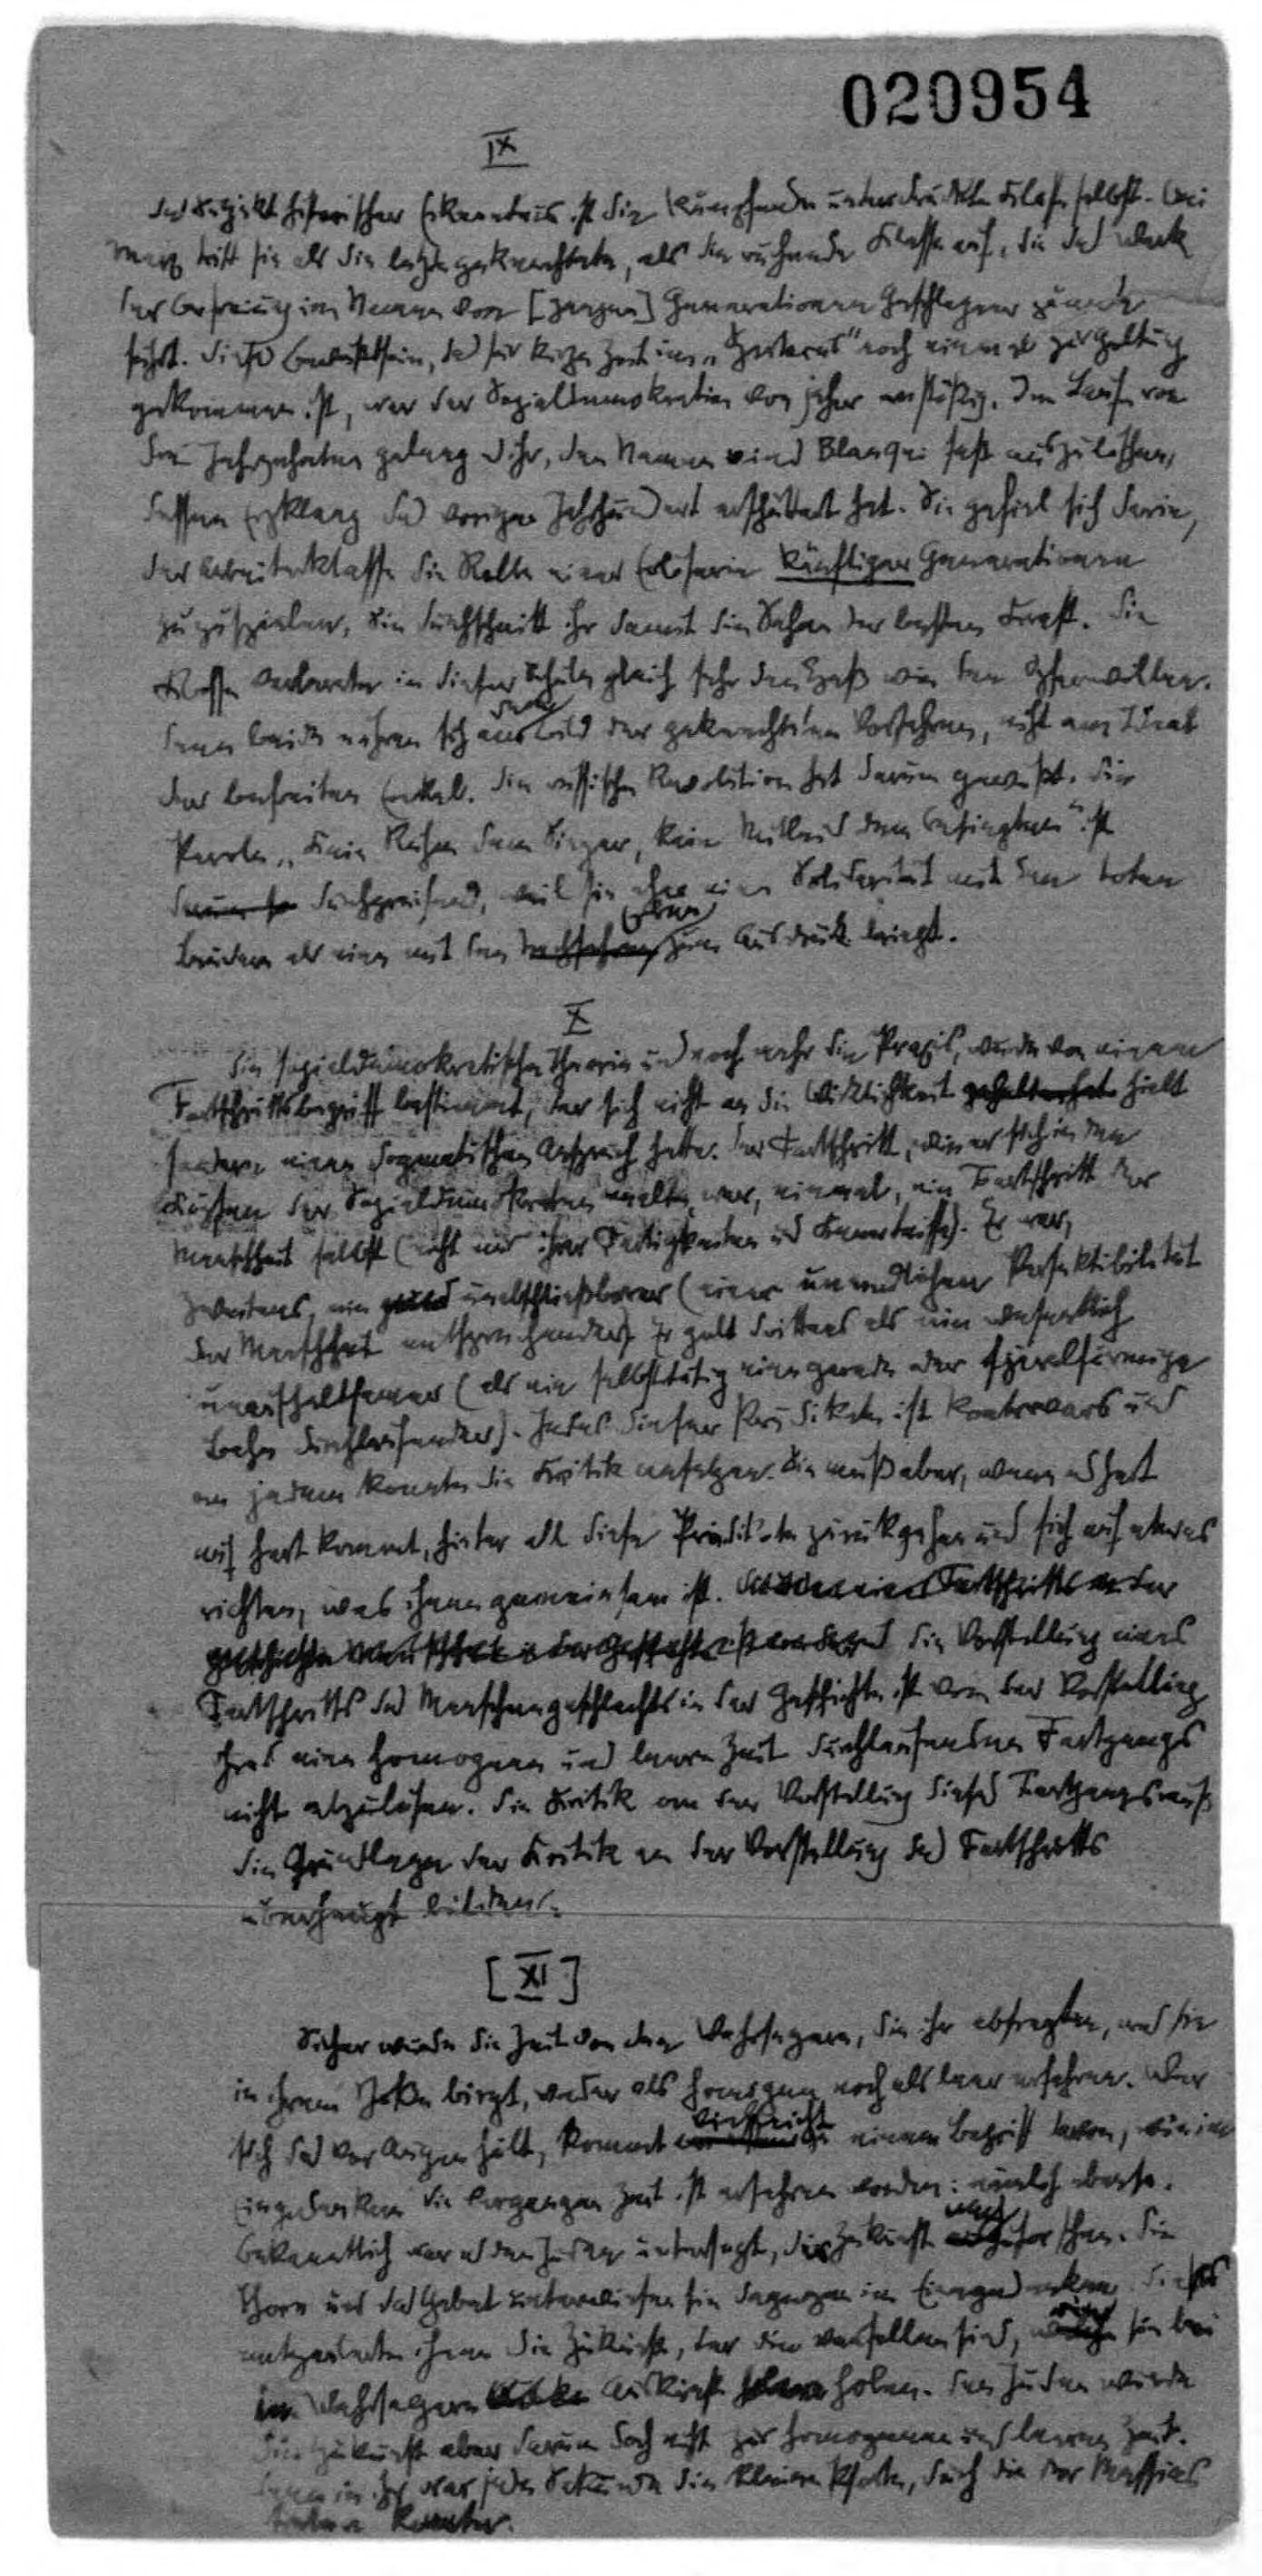 020954
IX
Das Subjekt historischer Erkenntnis ist die kämpfende unterdrückte Klasse selbst. Bei
Marx tritt sie als die letzte geknechtete, als die rächende Klasse auf, die das Werk
der Befreiung im Namen von [ganzen] Generationen Geschlagner zuende
führt. Dieses Bewußtsein, das für kurze Zeit im „Spartacus" noch einmal zur Geltung
gekommen ist, war der Sozialdemokratie von jeher anstößig. Im Lauf von
drei Jahrzehnten gelang es ihr, den Namen eines Blanqui fast auszulöschen,
dessen Erzklang das vorige Jahrhundert erschüttert hat. Sie gefiel sich darin,
der Arbeiterklasse die Rolle einer Erlöserin künftiger Generationen
zuzuspielen. Sie durchschnitt ihr damit die Sehne der besten Kraft. Die
Klasse verlernte in dieser Schule gleich sehr den Haß wie den Opferwillen.
Denn beide nähren sich aus dem Bild der geknechteten Vorfahren, nicht am Ideal
der befreiten Enkel. Die russische Revolution hat darum gewußt. Die
Parole „Kein Ruhm dem Sieger, kein Mitleid dem Besiegten" ist
darum so durchgreifend, weil sie eher eine Solidarität mit den toten
Brüdern als eine mit den Nachfahren Erben zum Ausdruck bringt.
X
Die sozialdemokratische Theorie und noch mehr die Praxis, wurde von einem
Fortschrittsbegriff bestimmt, der sich nicht an die Wirklichkeit gehalten hat hielt
sondern einen dogmatischen Anspruch hatte. Der Fortschritt, wie er sich in den
Köpfen der Sozialdemokraten malte, war, einmal, ein Fortschritt der
Menschheit selbst (nicht nur ihrer Fertigkeiten und Kenntnisse). Er war,
zweitens, ein unabschließbarer (einer unendlichen Perfektibilität
der Menschheit entsprechender). Er galt drittens als ein wesentlich
unaufhaltsamer (als ein selbsttätig eine gerade oder spiralförmige
Bahn durchlaufender). Jedes dieser Prädikate ist kontrovers und
an jedem könnte die Kritik ansetzen. Sie muß aber, wenn es hart
auf hart kommt, hinter all diese Prädikate zurückgehen und sich auf etwas
richten, was ihnen gemeinsam ist. Fortschritts in der
Geschichte Die Vorstellung eines
Fortschritts des Menschengeschlechts in der Geschichte ist von der Vorstellung
ihres eine homogene und leere Zeit durchlaufenden Fortgangs
nicht abzulösen. Die Kritik an der Vorstellung dieses Fortgangs muß
die Grundlage der Kritik an der Vorstellung des Fortschritts
überhaupt bilden.
[XI]
Sicher wurde die Zeit von den Wahrsagern, die ihr abfragten, was sie
in ihrem Schoße birgt, weder als homogen noch als leer erfahren. Wer
sich das vor Augen hält, kommt vielleicht zu einem Begriff davon, wie im
Eingedenken die vergangne Zeit ist erfahren worden: nämlich ebenso.
Bekanntlich war es den Juden untersagt, der Zukunft nachzuforschen. Die
Thora und das Gebet unterweisen sie dagegen im Eingedenken. Dieses
entzauberte ihnen die Zukunft, der die verfallen sind, die sich bei
den Wahrsagern Auskunft holen. Den Juden wurde
die Zukunft aber darum doch nicht zur homogenen und leeren Zeit.
Denn in ihr war jede Sekunde die kleine Pforte, durch die der Messias
treten konnte.